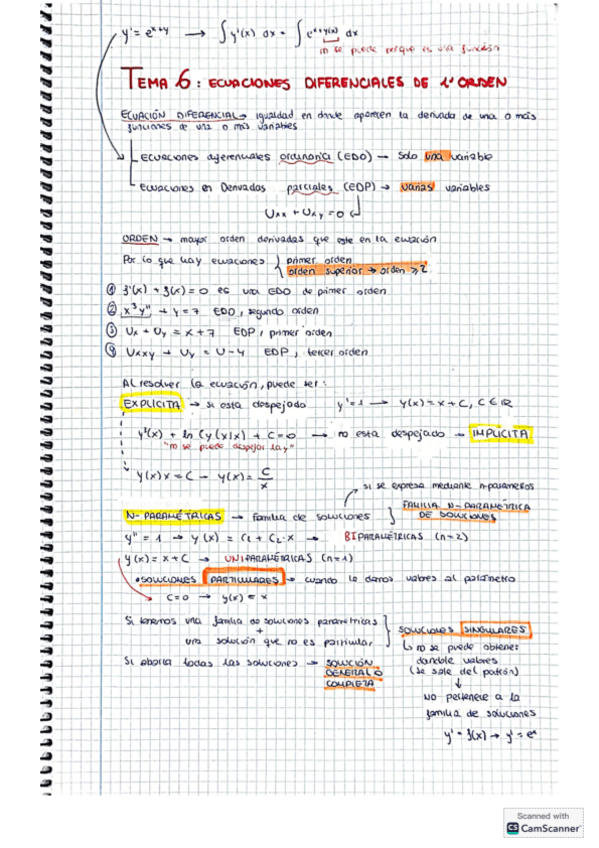 y' = e^(x+y) → ∫ y'(x) dx = ∫ e^(x+y(x)) dx
no se puede porque es una función
TEMA 6: ECUACIONES DIFERENCIALES DE 1er ORDEN
ECUACIÓN DIFERENCIAL → igualdad en donde aparecen la derivada de una o más
funciones de una o más variables
Ecuaciones diferenciales ordinaria (EDO) → Solo una variable
Ecuaciones en Derivadas parciales (EDP) → varias variables
Uxx + Uxy = 0
ORDEN → mayor orden derivadas que este en la ecuación
Por lo que hay ecuaciones } primer orden
orden superior → orden ≥ 2
① f'(x) + f(x) = 0 es una EDO de primer orden
② x³y'' + y = 7 EDO, segundo orden
③ Ux + Uy = x + 7 EDP, primer orden
④ Uxxy + Uy = U - 4 EDP, tercer orden
Al resolver la ecuación, puede ser:
EXPLICITA → si esta despejado y' = 1 → y(x) = x + C, C ∈ ℝ
y²(x) + ln (y(x)x) + C = 0 → no esta despejado → IMPLICITA
"no se puede despejar la y"
y(x) x = C → y(x) = C/x
si se expresa mediante n-parametros
N-PARAMÉTRICAS → familia de soluciones } FAMILIA N-PARAMÉTRICA
DE SOLUCIONES
y'' = 1 → y(x) = C1 + C2·x → BIPARAMÉTRICAS (n=2)
y(x) = x + C → UNIPARAMÉTRICAS (n=1)
SOLUCIONES PARTICULARES → cuando le damos valores al parámetro
C=0 → y(x) = x
Si tenemos una familia de soluciones parametricas
+
una solución que no es particular } SOLUCIONES SINGULARES
↳ no se puede obtener
dandole valores
(se sale del patrón)
Si aborda todas las soluciones → SOLUCIÓN
GENERAL O
COMPLETA
↓
No pertenece a la
familia de soluciones
y' = f(x) → y' = eˣ
Scanned with
CS CamScanner